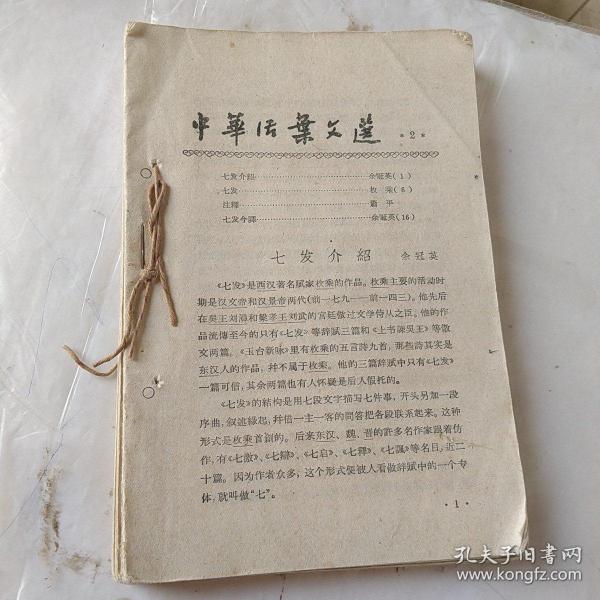 中華活葉文選 *2*
七发介紹……………………………余冠英(1)
七发…………………………………枚 乘(6)
注釋…………………………………蕭 平
七发今譯……………………………余冠英(16)
七发介紹 余冠英
《七发》是西汉著名賦家枚乘的作品。枚乘主要的活动时
期是汉文帝和汉景帝两代(前一七九——前一四三)。他先后
在吴王刘濞和梁孝王刘武的宫廷做过文学侍从之臣。他的作
品流傳至今的只有《七发》等辞賦三篇和《上书諫吴王》等散
文两篇。《玉台新咏》里有枚乘的五言詩九首,那些詩其实是
东汉人的作品,幷不属于枚乘。他的三篇辞賦中只有《七发》
一篇可信,其余两篇也有人怀疑是后人假托的。
《七发》的结构是用七段文字描写七件事,开头另加一段
序曲,叙述緣起,幷借一主一客的問答把各段联系起来。这种
形式是枚乘首創的。后来东汉、魏、晋的許多名作家跟着仿
作,有《七激》、《七辯》、《七启》、《七釋》、《七諷》等名目,近二
十篇。因为作者众多,这个形式便被人看做辞賦中的一个专
体,就叫做“七”。
·1·
孔夫子旧书网
www.kongfz.com